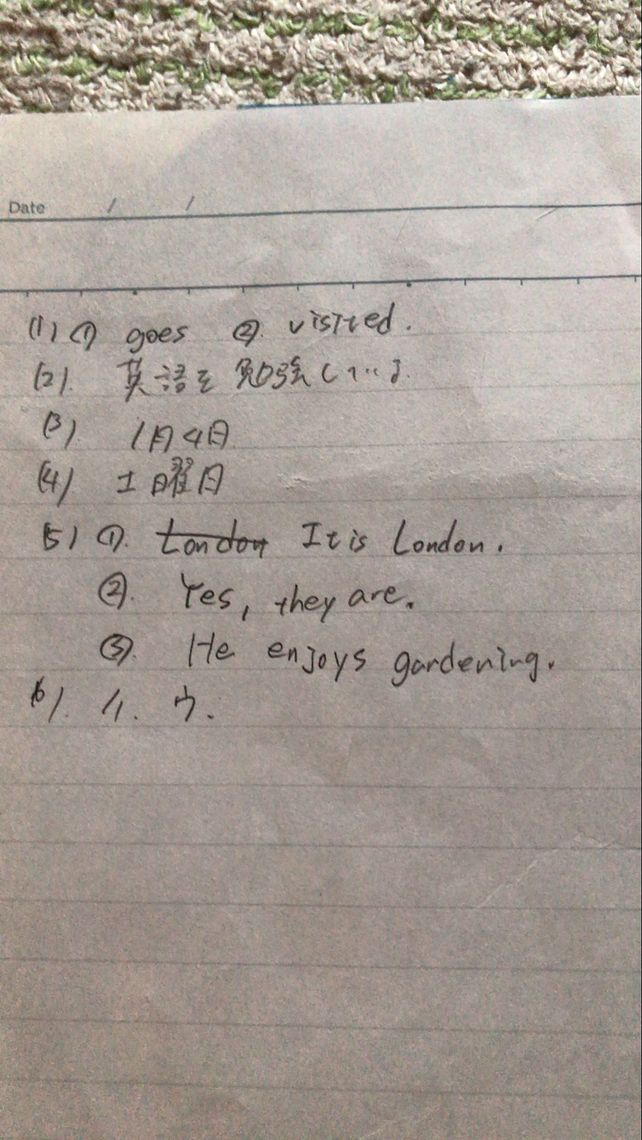 Date / /
(1) ① goes ② visited.
(2). 英語を勉強している.
(3) 1月4日
(4) 土曜日
(5) ①. London It is London.
②. Yes, they are.
③. He enjoys gardening.
(6). イ. ウ.